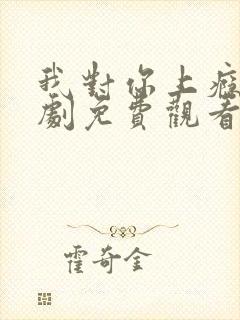 我對你上癮
劇免費觀看
霍奇金